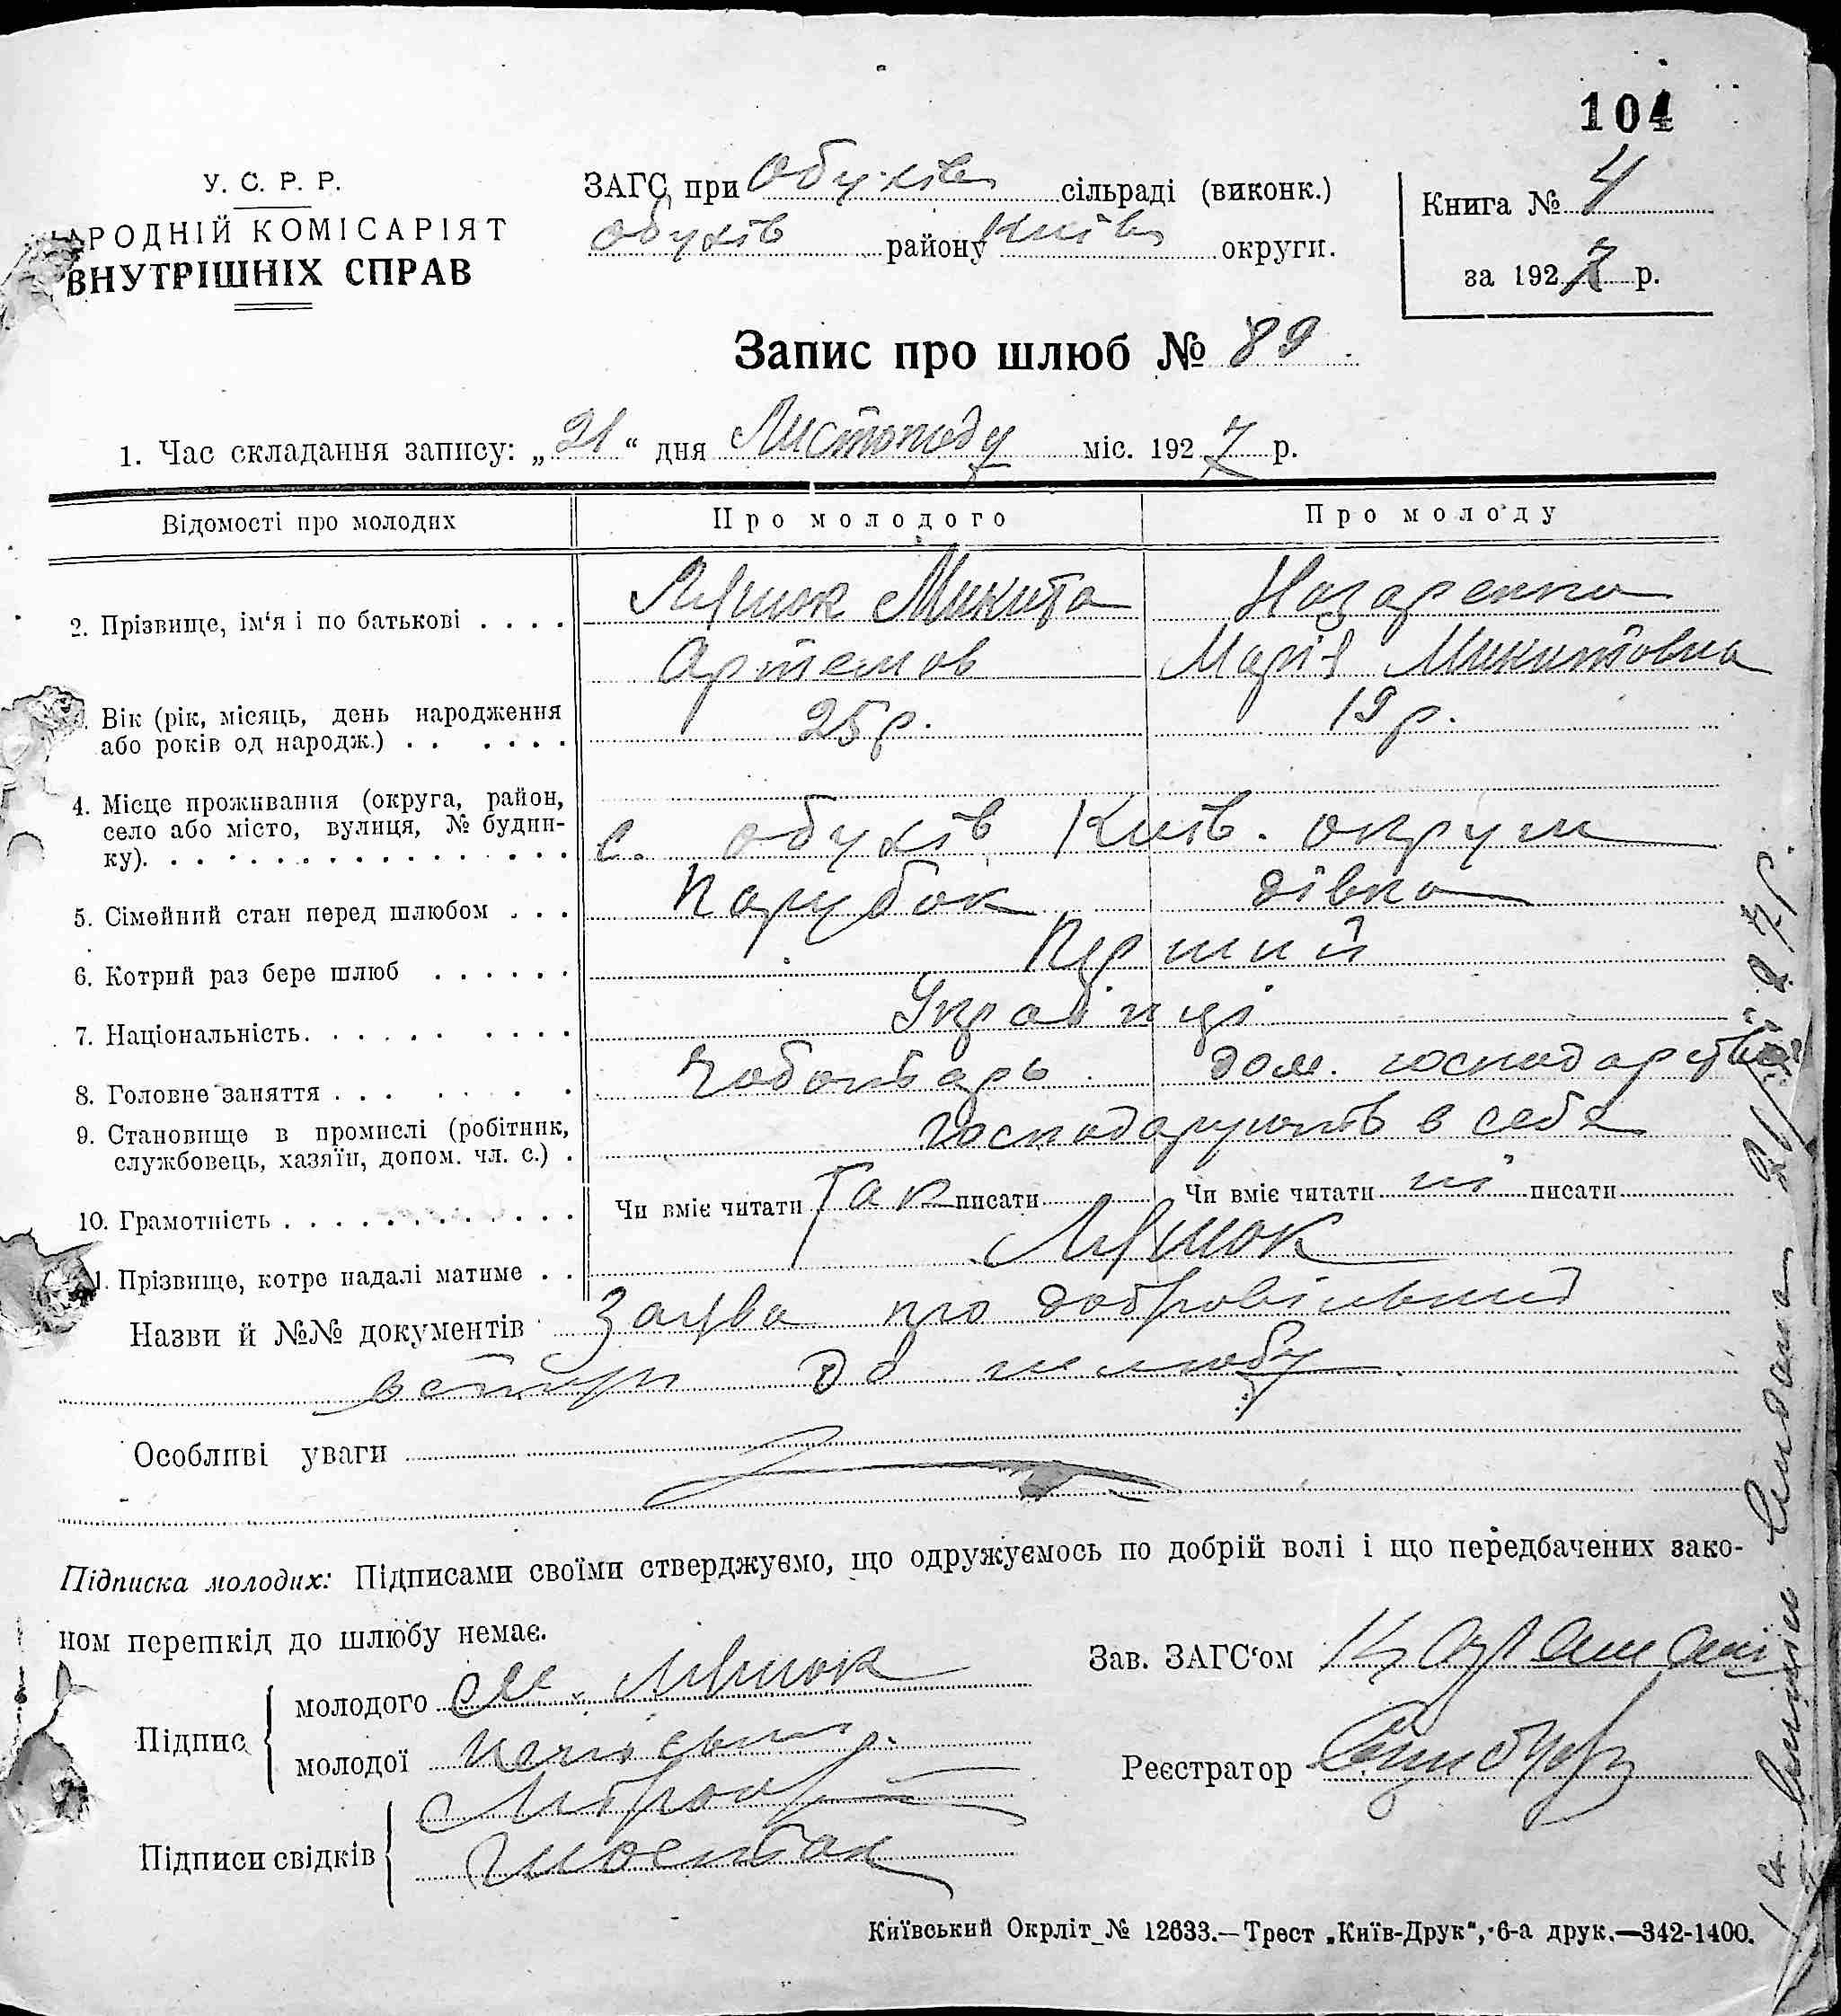 104
У. С. Р. Р.
НАРОДНІЙ КОМІСАРІЯТ
ВНУТРІШНІХ СПРАВ
ЗАГС при Обухівс сільраді (виконк.)
Обухів району Київс округи.
Книга № 4
за 1927 р.
Запис про шлюб № 89.
1. Час складання запису: „21“ дня Листопаду міс. 1927 р.
Відомості про молодих Про молодого Про молоду
2. Прізвище, ім'я і по батькові . . . . Ляшок Микита Назаренко
Артемов Марія Микитовна
Вік (рік, місяць, день народження 25 р. 19 р.
або років од народж.) . . . . . .
4. Місце проживання (округа, район,
село або місто, вулиця, № будин- с. Обухів Київ. округи
ку). . . . . . . . . . . . . . . .
5. Сімейний стан перед шлюбом . . . Парубок дівка
6. Котрий раз бере шлюб . . . . . . Перший
7. Національність. . . . . . . . . . Українці
8. Головне заняття . . . . . . . Чоботарь дом. господарство
9. Становище в промислі (робітник, господарують в себе
службовець, хазяїн, допом. чл. с.) .
10. Грамотність . . . . . . . . . . . . Чи вміє читати Так писати Чи вміє читати ні писати
1. Прізвище, котре надалі матиме . . Ляшок
Назви й №№ документів Заява про добровільний
вступ до шлюбу
Особливі уваги
Підписка молодих: Підписами своїми стверджуємо, що одружуємось по добрій волі і що передбачених зако-
ном перешкід до шлюбу немає.
Підпис молодого М. Ляшок
молодої
Підписи свідків
Зав. ЗАГС'ом
Реєстратор
Київський Окрліт № 12633.—Трест „Київ-Друк“, 6-а друк.—342-1400.